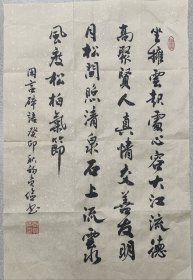 坐擁雲起處心容大江流德
高聚賢人真情交善友明
月松間照清泉石上流雲
風度松柏氣節
周言碎語癸卯秋